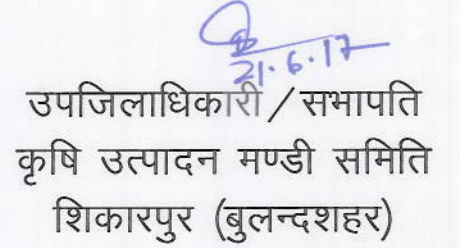 21.6.17
उपजिलाधिकारी / सभापति
कृषि उत्पादन मण्डी समिति
शिकारपुर (बुलन्दशहर)